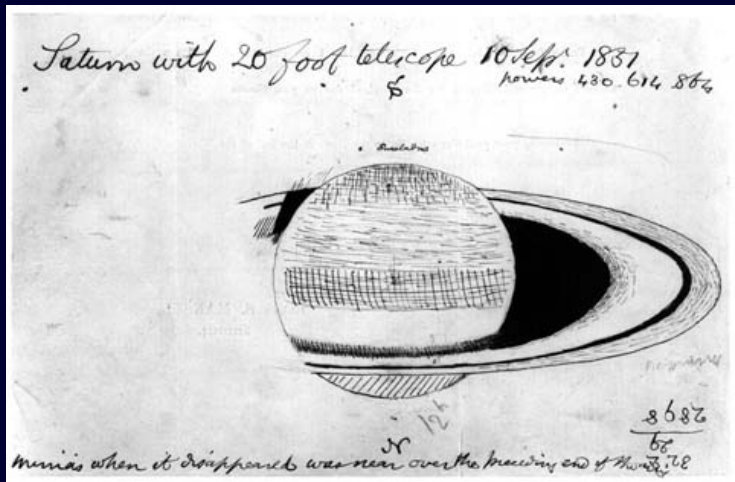 Saturn with 20 foot telescope 10 Sept. 1851
powers 430. 614 864
S
Enceladus
N
Mimas when it disappeared was near over the preceding end of the